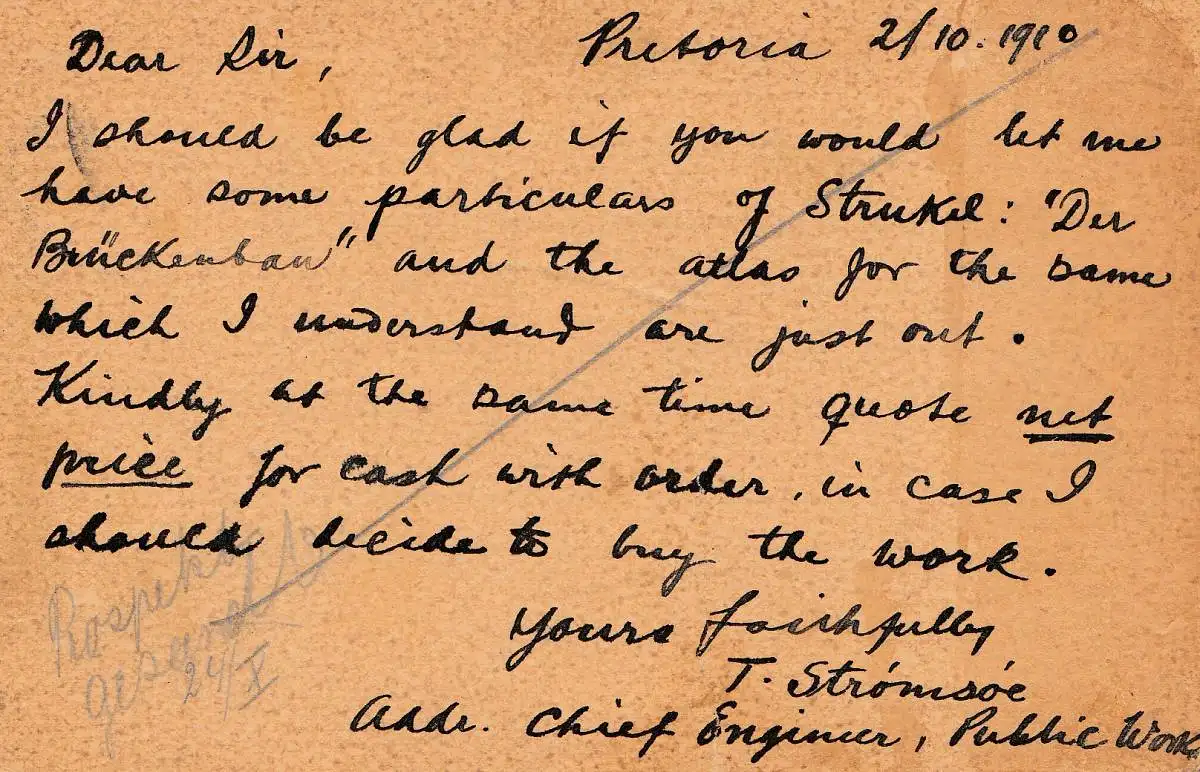 Dear Sir, Pretoria 2/10.1910
I should be glad if you would let me
have some particulars of Strukel: "Der
Brückenbau" and the atlas for the same
which I understand are just out.
Kindly at the same time quote net
price for cash with order, in case I
should decide to buy the work.
Yours faithfully
T. Strómsóe
Addr. Chief Engineer, Public Works
Prospekt
gesandt
24/X